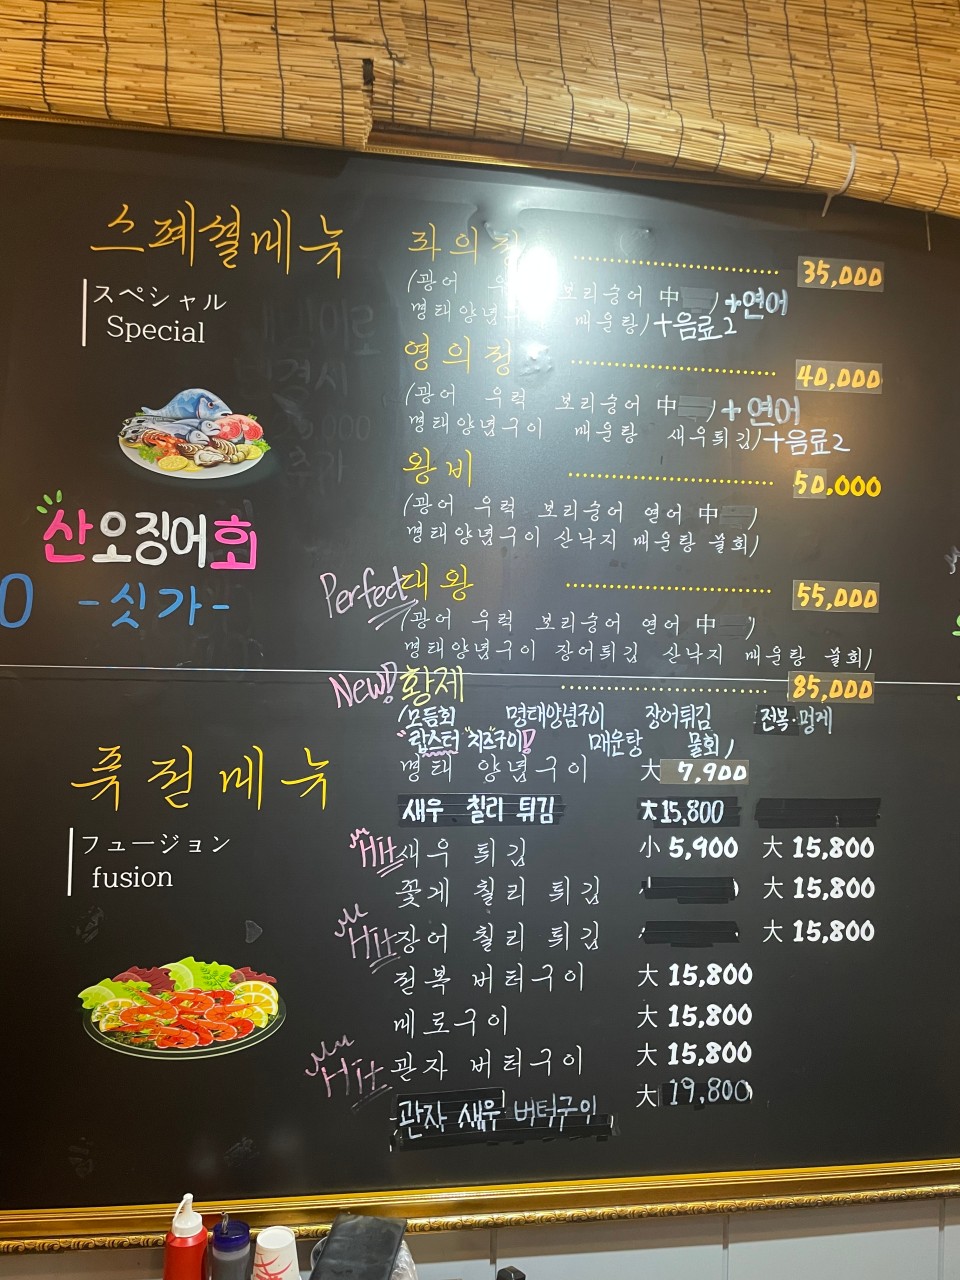 스페셜메뉴
スペシャル
Special
산오징어회
-싯가-
좌의정 35,000
(광어 우 보리숭어 中 ) +연어
명태양념구 매운탕) +음료2
영의정 40,000
(광어 우럭 보리숭어 中 ) +연어
명태양념구이 매운탕 새우튀김) +음료2
왕비 50,000
(광어 우럭 보리숭어 연어 中 )
명태양념구이 산낙지 매운탕 물회)
Perfect 대왕 55,000
(광어 우럭 보리숭어 연어 中 )
명태양념구이 장어튀김 산낙지 매운탕 물회)
New! 황제 85,000
(모듬회 명태양념구이 장어튀김 전복·멍게
"랍스터 치즈구이" 매운탕 물회)
퓨전메뉴
フュージョン
fusion
명태 양념구이 大 7,900
새우 칠리 튀김 大 15,800
Hit 새우 튀김 小 5,900 大 15,800
꽃게 칠리 튀김 大 15,800
Hit 장어 칠리 튀김 大 15,800
전복 버터구이 大 15,800
메로구이 大 15,800
Hit 관자 버터구이 大 15,800
관자 새우 버터구이 大 19,800